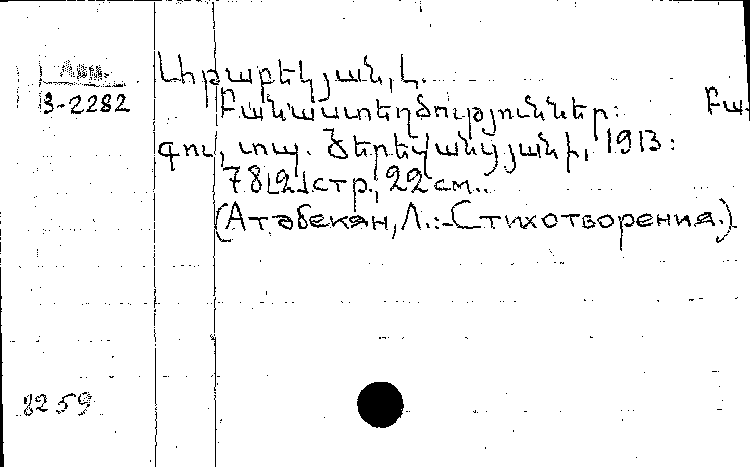 Арм.
3-2282
Աթաբեկյան, Լ.
Բանաստեղծություններ: Բա-
գու, տպ. Ծերեվանցյանի, 1913:
78[2]стр., 22 см..
(Атабекян, Л.:-Стихотворения.)
8259